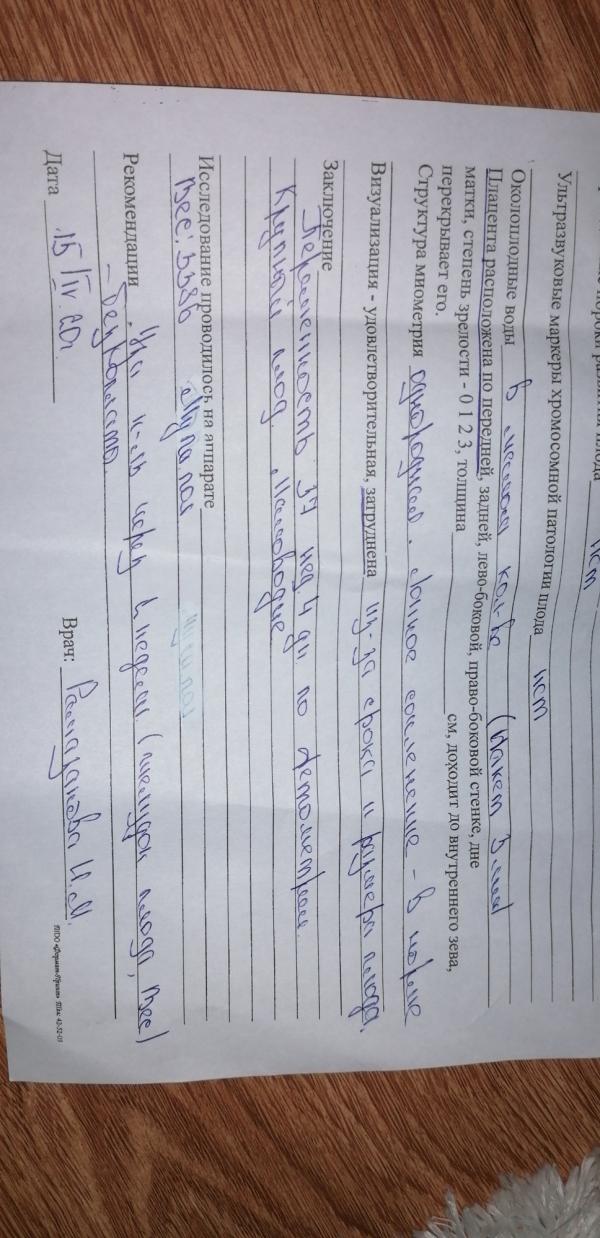 пороки развития плода нет
Ультразвуковые маркеры хромосомной патологии плода нет
Околоплодные воды в кол-ве (пакет 3
Плацента расположена по передней, задней, лево-боковой, право-боковой стенке, дне
матки, степень зрелости - 0 1 2 3, толщина см, доходит до внутреннего зева,
перекрывает его.
Структура миометрия однородная. Лонное сочленение - в норме
Визуализация - удовлетворительная, затруднена из-за срока и размера плода.
Заключение
Беременность 37 нед 4 дн по фетометрии.
Крупный плод. Маловодие
Исследование проводилось на аппарате
Вес:
Рекомендации Узи к-ль через 2 недели. (плода, вес)
Дата 15/IV.20г. Врач: Рамазанова И.М.